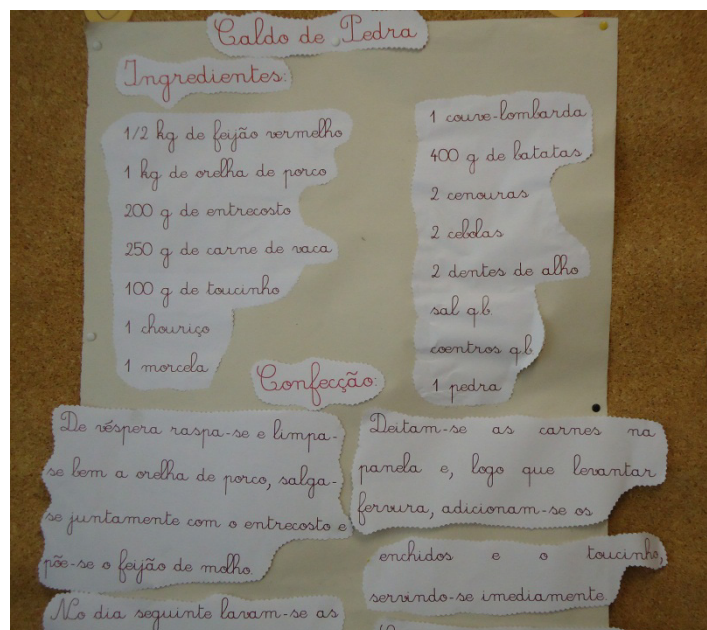 Caldo de Pedra
Ingredientes:
1/2 kg de feijão vermelho
1 kg de orelha de porco
200 g de entrecosto
250 g de carne de vaca
100 g de toucinho
1 chouriço
1 morcela
1 couve-lombarda
400 g de batatas
2 cenouras
2 cebolas
2 dentes de alho
sal qb
coentros qb
1 pedra
Confecção:
De véspera raspa-se e limpa-
se bem a orelha de porco, salga-
se juntamente com o entrecosto e
põe-se o feijão de molho.
No dia seguinte lavam-se as
Deitam-se as carnes na
panela e, logo que levantar
fervura, adicionam-se os
enchidos e o toucinho,
servindo-se imediamente.